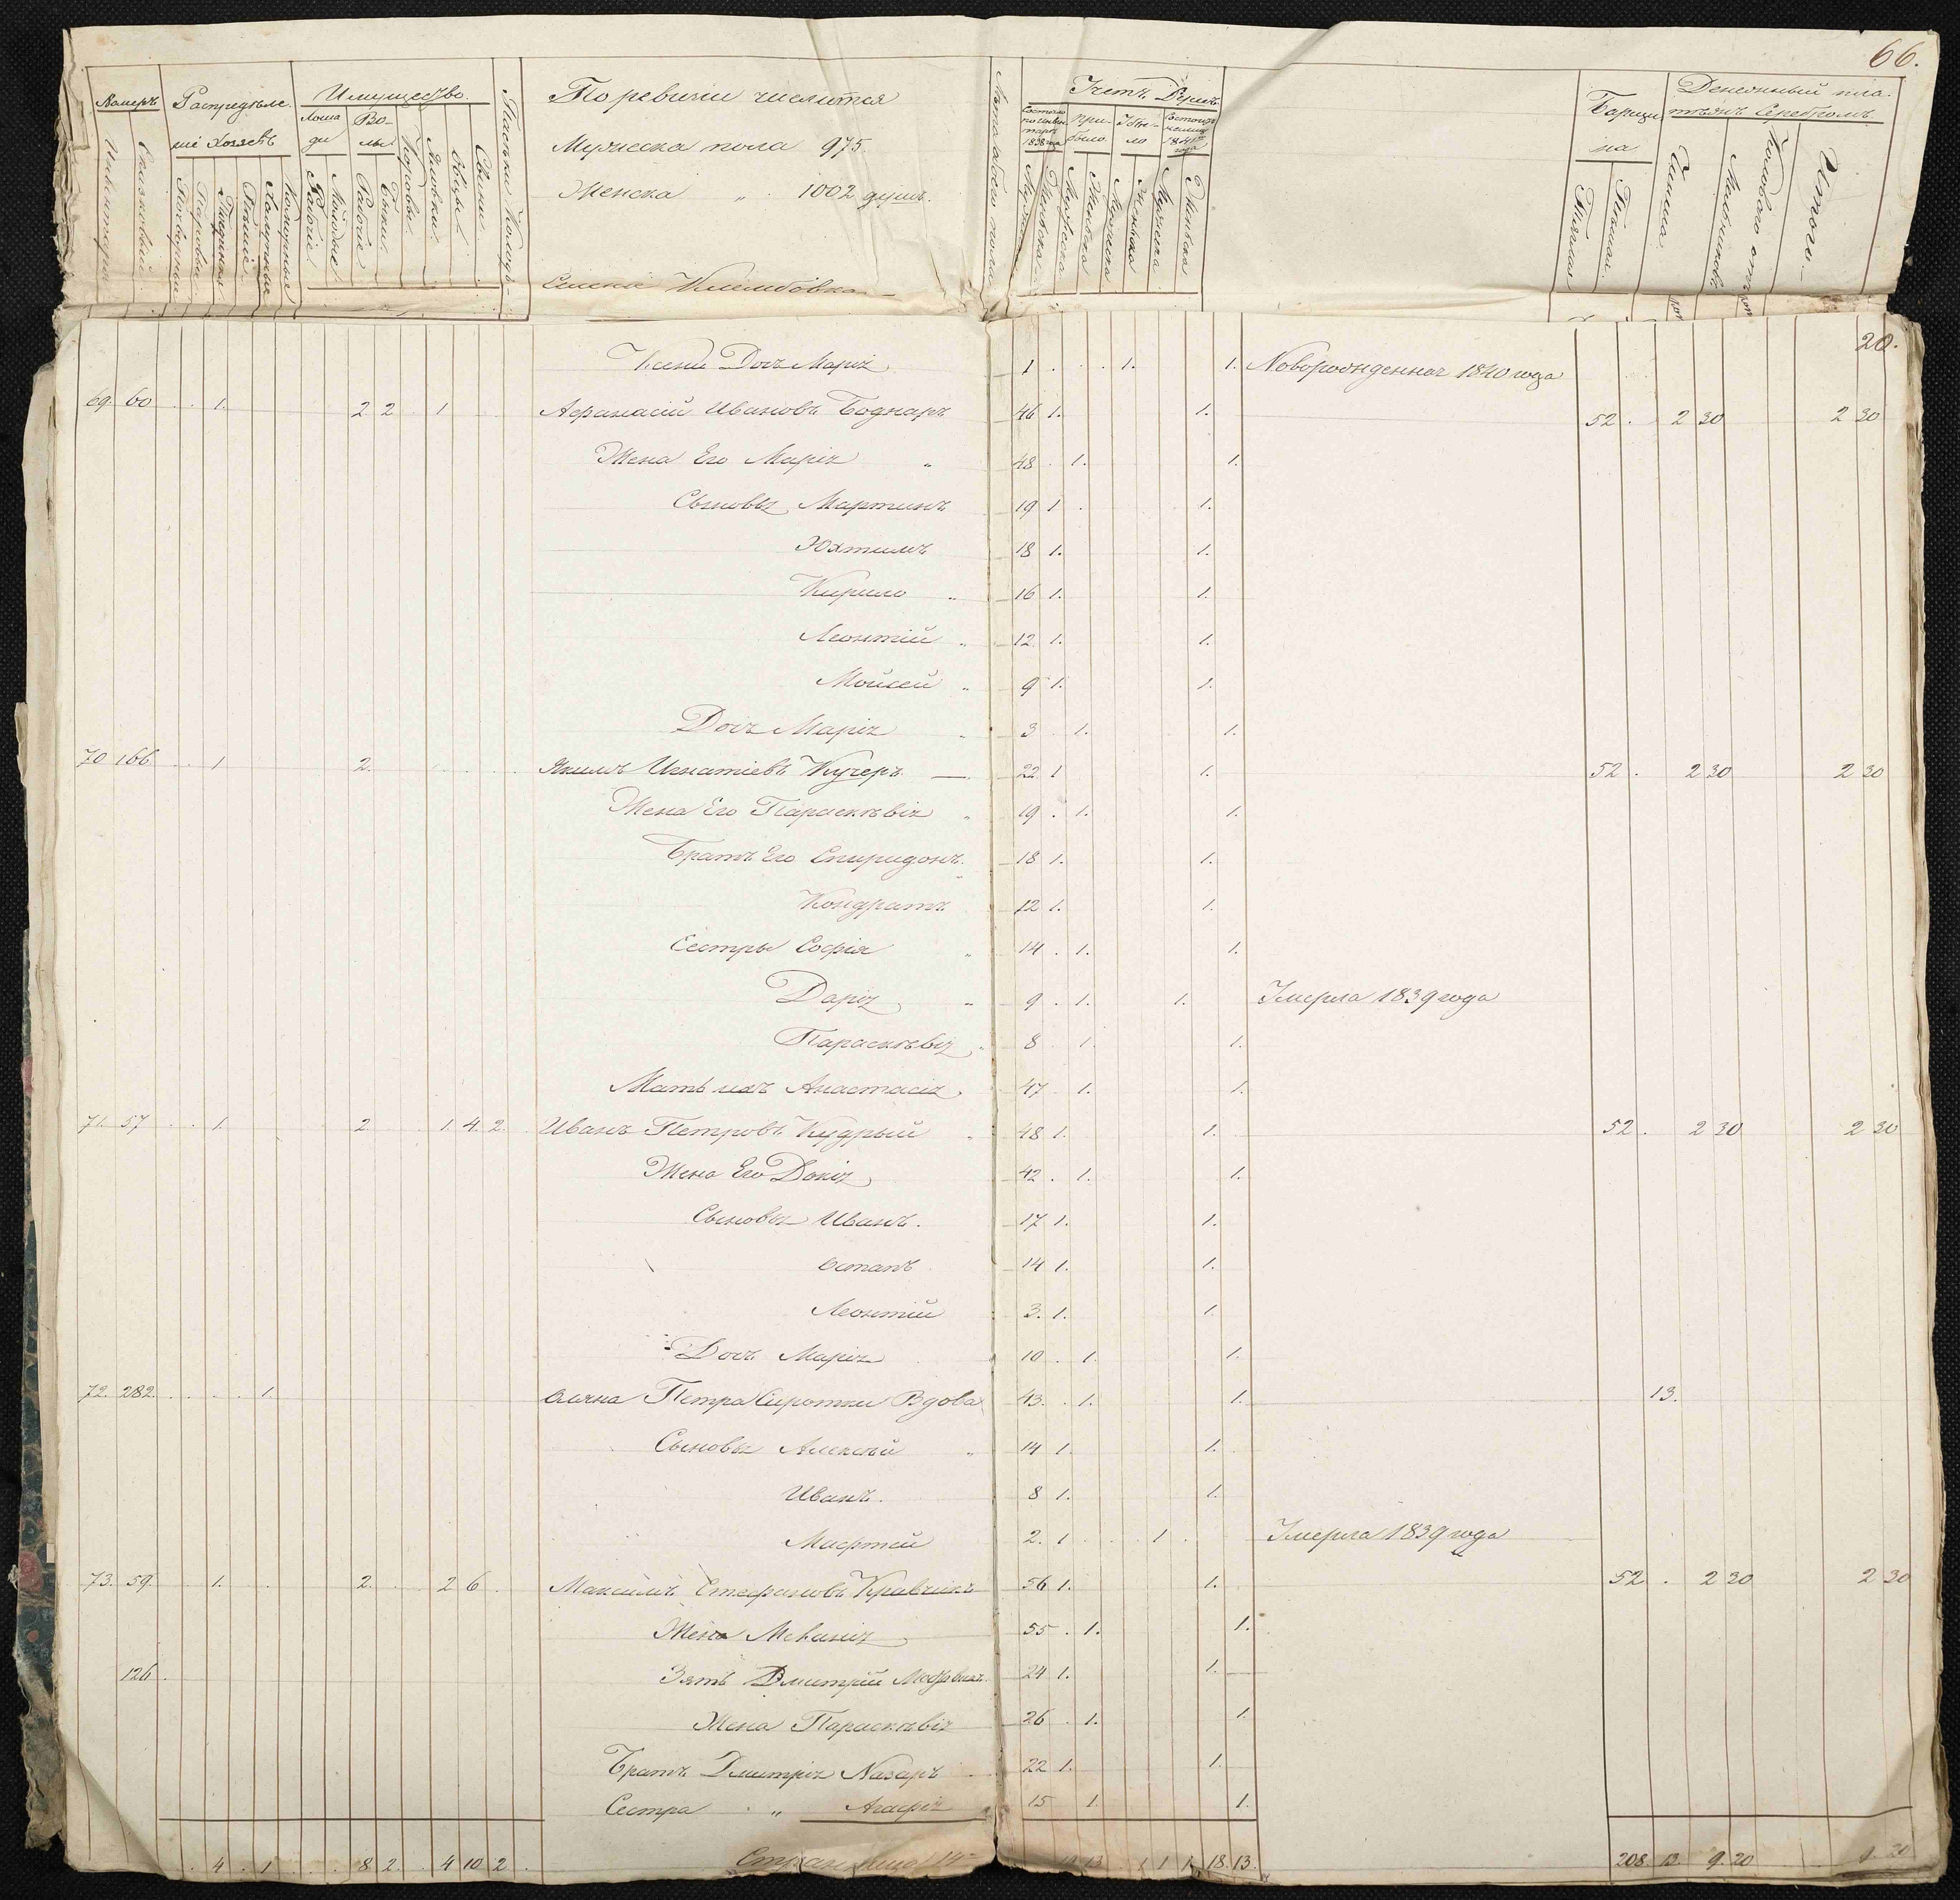 66.
Номеръ
Инвентаря
Сказковый
Распредѣле
ніе Хозяевъ
Тягловыи
Паровые
Пѣшіе
Халупные
Имущество
Лоша
ди
Рабочіе
Молодые
Во-
лы
Рабочіе
Бычки
Коровы
Яловки
Овцы
Свиньи
Пасѣки Колодъ
По ревизіи числится
Мужеска пола 975.
Женска „ 1002 душъ.
Селеніе Клембовка
Лѣта
Учетъ Душъ
Состояло
по инвен
тарю
1838 года
При-
было
Убы-
ло
Состоитъ
на лицо
1841
года
Мужеска
Женска
Мужеска
Женска
Мужеска
Женска
Мужеска
Женска
Барщи
на
Тяглая
Пѣшая
Денежный пла-
тежъ Серебромъ
Чинша
Итого
20.
Ксенія Дочъ Марія 1 . . . 1. 1. Новорожденная 1840 года
69. 60 . . 1. 2 2 . 1 Афанасій Ивановъ Боднаръ 46 1. 1. 52 . 2 30 2 30
Жена Его Марія „ 48 . 1. 1.
Сыновья Мартинъ 19 1 . 1.
Юхтимъ 18 1. 1.
Кирило „ 16 1. 1.
Леонтій „ 12 1. 1.
Мойсей „ 9 1. 1.
Дочъ Марія „ 3 . 1. 1.
70 166 . . 1 2. Якимъ Игнатіевъ Кучеръ — 22 1 1. 52 . 2 30 2 30
Жена Его Параскѣвія „ 19 . 1. 1.
Братъ Его Спиридонъ. 18 1. 1.
Кондратъ 12 1. 1.
Сестры Софія „ 14 . 1. 1.
Дарія „ 9 . 1. 1. Умерла 1839 года
Параскѣвія „ 8 1. 1.
Мать ихъ Анастасія 47 . 1. 1.
71. 57 . . 1. 2. 1. 4. 2. Иванъ Петровъ Кудрый „ 48 1. 1. 52 . 2 30 2 30
Жена Его Докія 42 . 1. 1.
Сыновья Иванъ. 17 1. 1.
Остапъ 14 1. 1.
Леонтій 3. 1. 1.
Дочъ Марія 10 . 1. 1.
72. 282. . . . . 1. Оляна Петра Сиротки Вдова 43. . 1. 1. 13.
Сыновья Алексѣй „ 14 1. 1.
Иванъ. 8 1. 1.
Мафтей 2. 1 . . . 1 . Умерла 1839 года
73. 59. . 1. . 2. . 2 6 . Максимъ Стефановъ Кравчикъ 56 1. 1. 52 . 2 30 2 30
Жена Меланія 55 . 1. 1.
126 . Зять Дмитрій 24 1. 1.
Жена Параскѣвія 26 . 1. 1.
Братъ Дмитрія Назаръ 22 1. 1.
Сестра „ Агафія 15 1. 1.
. 4 . 1 . . . 8 2. . 4 10 2 . 1 1 1. 18. 13. 208 13. 9. 20